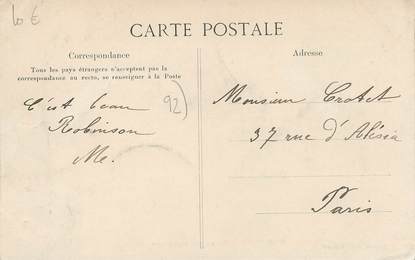 10 €
CARTE POSTALE
Correspondance
Tous les pays étrangers n'acceptent pas la
correspondance au recto, se renseigner à la Poste
Adresse
92)
C'est beau
Robinson
Me.
Monsieur Crotet
37 rue d'Alésia
Paris